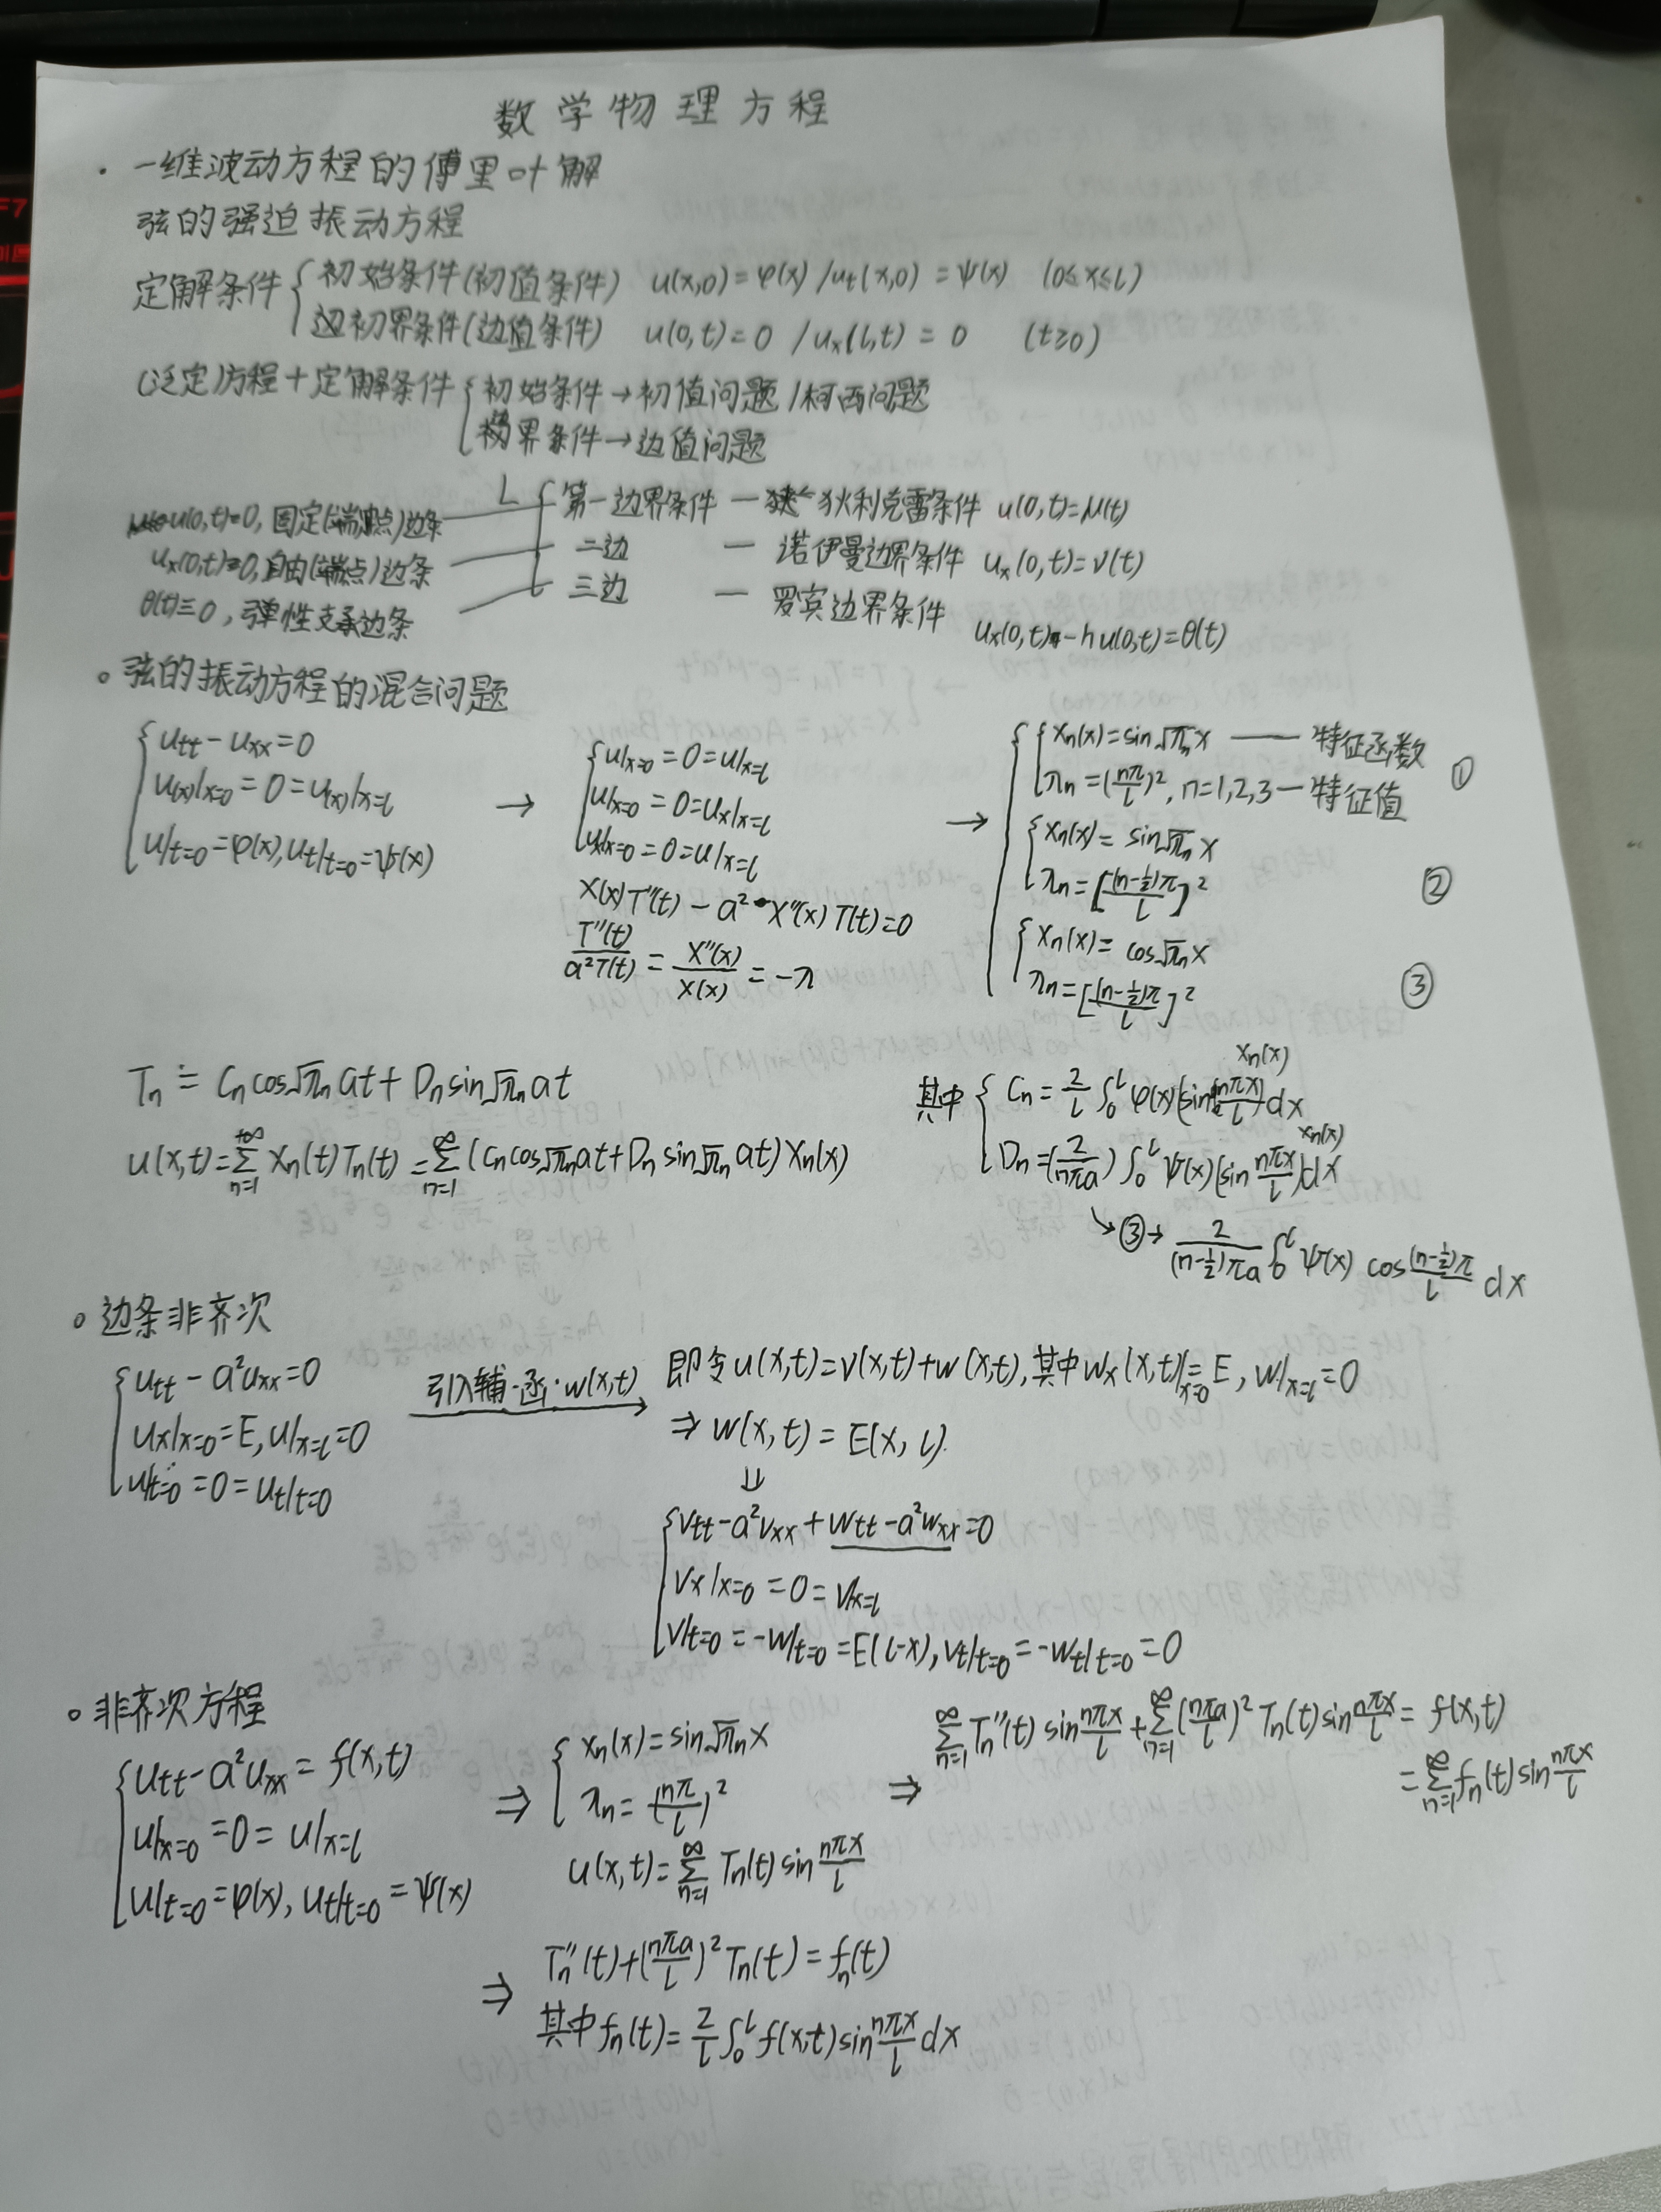 数学物理方程
· 一维波动方程的傅里叶解
弦的强迫振动方程
定解条件 { 初始条件(初值条件) u(x,0)=φ(x) / u_t(x,0)=ψ(x) (0≤x≤l)
边初界条件(边值条件) u(0,t)=0 / u_x(l,t)=0 (t≥0)
(泛定)方程+定解条件 { 初始条件→初值问题/柯西问题
界条件→边值问题
u(0,t)=0, 固定(端点)边条 — { 第一边界条件 — 狄利克雷条件 u(0,t)=μ(t)
u_x(0,t)≡0, 自由(端点)边条 — 二边 — 诺伊曼边界条件 u_x(0,t)=ν(t)
θ(t)≡0, 弹性支承边条 — 三边 — 罗宾边界条件 u_x(0,t)-hu(0,t)=θ(t)
。弦的振动方程的混合问题
{ u_tt-u_xx=0
u(x)|x=0 =0= u(x)|x=l
u|t=0=φ(x), u_t|t=0=ψ(x)
→ { u|x=0 =0= u|x=l
u|x=0 =0= u_x|x=l
u_x|x=0 =0= u|x=l
X(x)T''(t) - a²·X''(x)T(t)=0
T''(t)/a²T(t) = X''(x)/X(x) = -λ
→ { { X_n(x)=sin√λ_n x —— 特征函数
λ_n=(nπ/l)², n=1,2,3 — 特征值 ①
{ X_n(x)=sin√λ_n x
λ_n=[(n-½)π/l]² ②
{ X_n(x)=cos√λ_n x
λ_n=[(n-½)π/l]² ③
T_n = C_n cos√λ_n at + D_n sin√λ_n at
u(x,t)=∑_{n=1}^{+∞} X_n(t)T_n(t) = ∑_{n=1}^{∞} (C_n cos√λ_n at + D_n sin√λ_n at) X_n(x)
X_n(x)
其中 { C_n = 2/l ∫_0^l φ(x)(sin nπx/l)dx
X_n(x)
D_n=(2/nπa) ∫_0^l ψ(x)(sin nπx/l)dx
↘③→ 2/(n-½)πa ∫_0^l ψ(x) cos (n-½)π/l dx
。边条非齐次
{ u_tt - a²u_xx=0
u_x|x=0=E, u|x=l=0
u|t=0 =0= u_t|t=0
引入辅·函·w(x,t) →
即令u(x,t)=v(x,t)+w(x,t), 其中w_x(x,t)|x=0=E, w|x=l=0
⇒ w(x,t)=E(x, l).
⇓
{ v_tt-a²v_xx+w_tt-a²w_xx=0
v_x|x=0 =0= v|x=l
v|t=0 = -w|t=0 = E(l-x), v_t|t=0 = -w_t|t=0 =0
。非齐次方程
{ u_tt-a²u_xx=f(x,t)
u|x=0 =0= u|x=l
u|t=0=φ(x), u_t|t=0=ψ(x)
⇒ { X_n(x)=sin√λ_n x
λ_n=(nπ/l)²
u(x,t)=∑_{n=1}^{∞} T_n(t) sin nπx/l
⇒ ∑_{n=1}^{∞} T_n''(t) sin nπx/l + ∑_{n=1}^{∞} (nπa/l)² T_n(t) sin nπx/l = f(x,t)
= ∑_{n=1}^{∞} f_n(t) sin nπx/l
⇒ T_n''(t)+(nπa/l)² T_n(t)=f_n(t)
其中 f_n(t)= 2/l ∫_0^l f(x,t) sin nπx/l dx